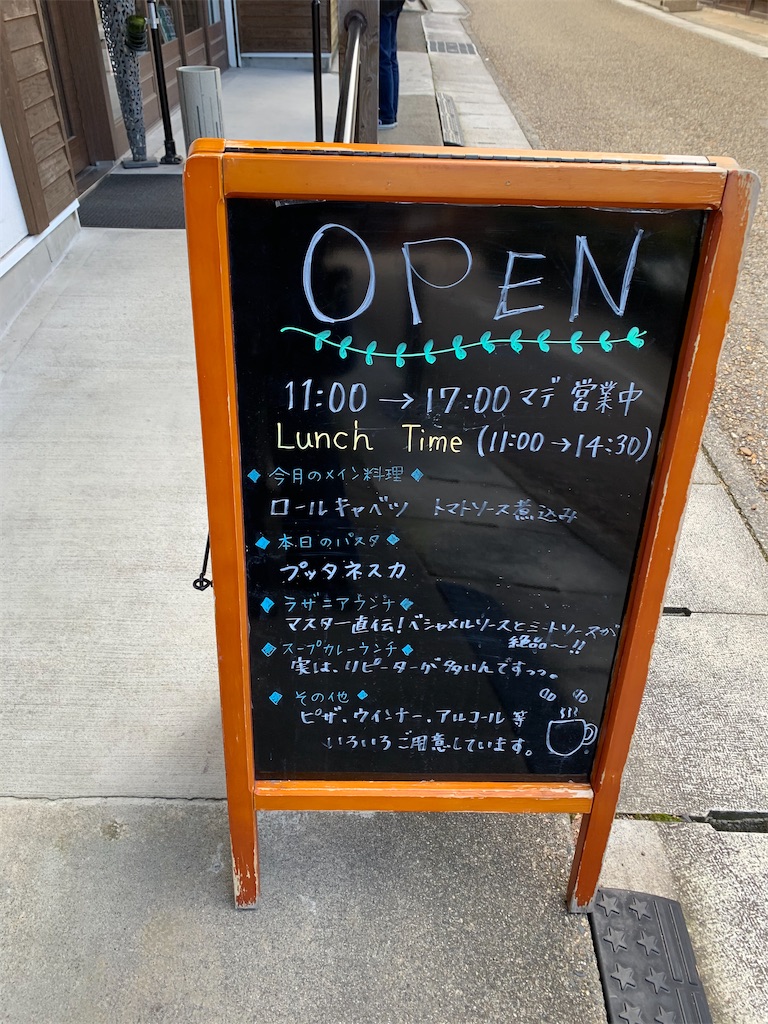 OPEN
11:00→17:00マデ営業中
Lunch Time (11:00→14:30)
◆今月のメイン料理◆
ロールキャベツ トマトソース煮込み
◆本日のパスタ◆
プッタネスカ
◆ラザニアランチ◆
マスター直伝!ベシャメルソースとミートソースが
絶品〜!!
◆スープカレーランチ◆
実は、リピーターが多いんですっっ。
◆その他◆
ピザ、ウインナー、アルコール等
いろいろご用意しています。